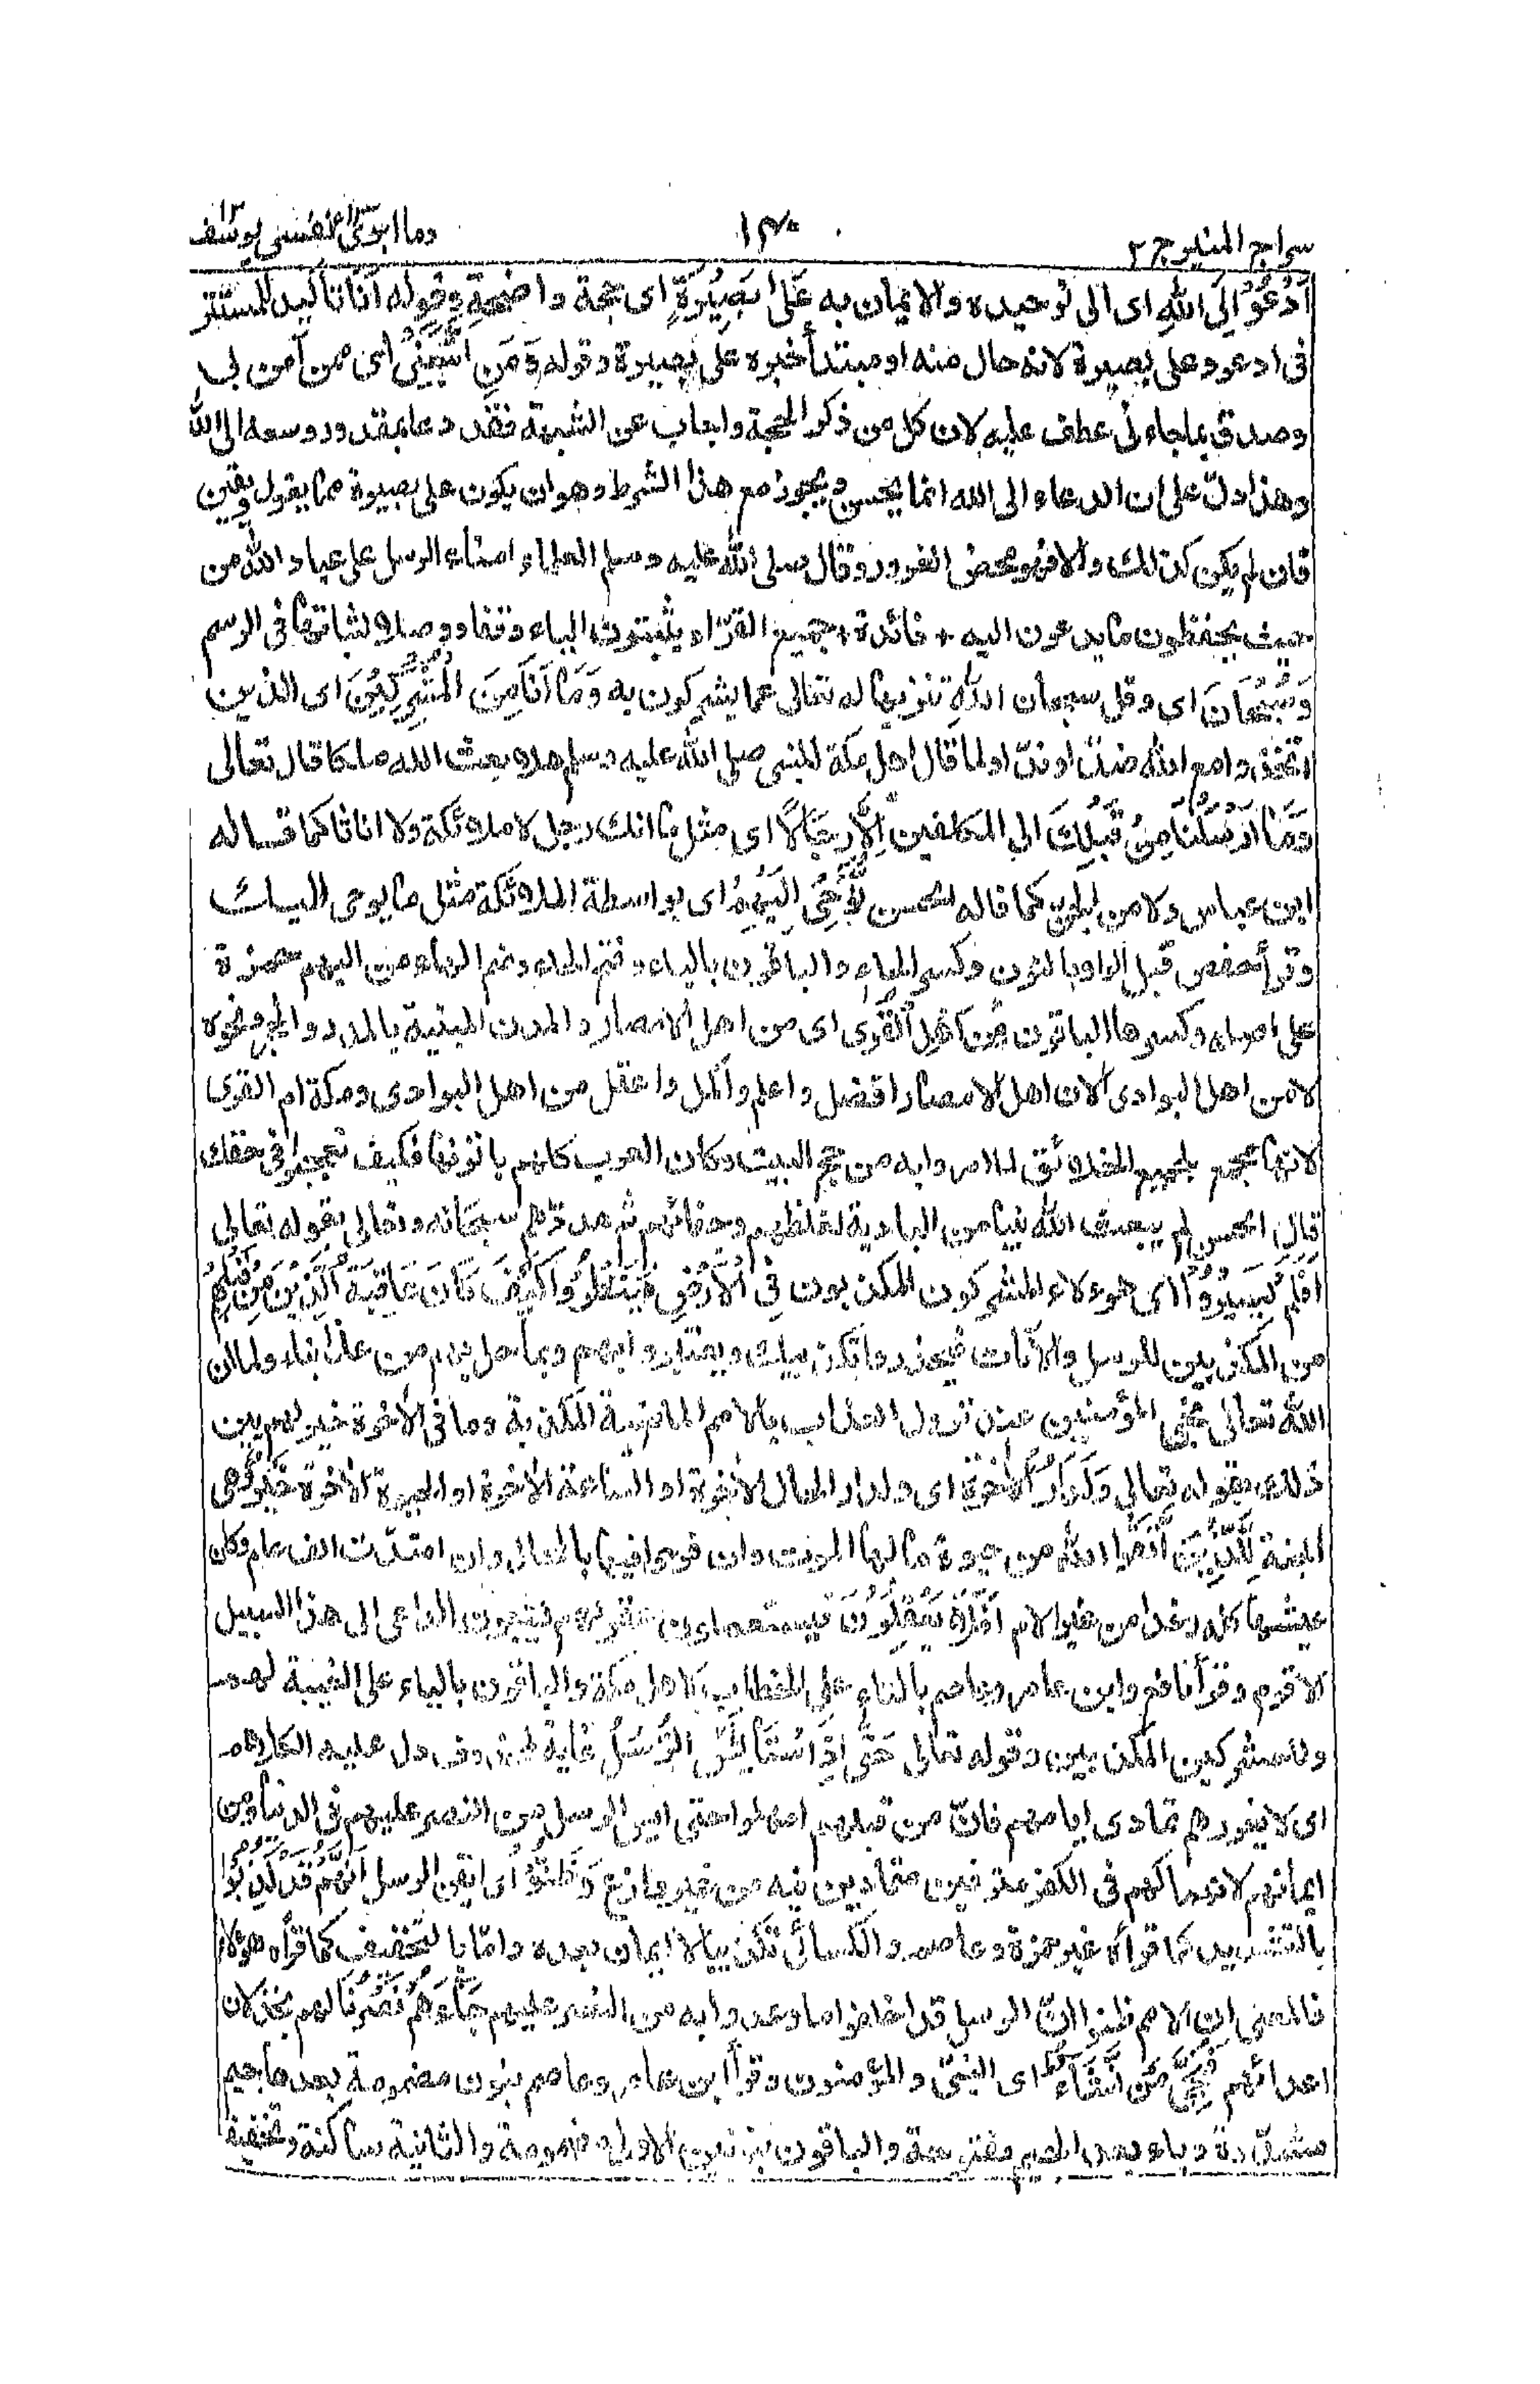 سراج المنير ج ٢
١٣٠
وما ابرئ ١٣ يوسف ١٢
اَدْعُوْ اِلَى اللهِ اى الى توحيده والايمان به عَلٰى بَصِيْرَةٍ اى حجة واضحة وقوله اَنَا تاكيد للمستتر
فى ادعو وعلى بصيرة لانه حال منه او مبتدأ خبره على بصيرة وقوله وَمَنِ اتَّبَعَنِىْ اى من آمن بى
وصدق بما جاء نى عطف عليه لان كل من ذكر الحجة واجاب عن الشبهة فقد دعا بمقدور وسعه الى الله
وهذا دل على ان الدعاء الى الله انما يحسن ويجوز مع هذا الشرط وهو ان يكون على بصيرة مما يقول ويقين
فان لم يكن كذلك والا فهو محض الغرور وقال صلى الله عليه وسلم العلماء امناء الرسل على عباد الله من
حيث يحفظون ما يدعون اليه + فائدة + جميع القرّاء يثبتون الياء وقفا ووصلا لثباتها فى الرسم
وَسُبْحَانَ اى وقل سبحان اللّٰهِ تنزيها له تعالى عما يشركون به وَمَا اَنَا مِنَ الْمُشْرِكِيْنَ اى الذين
اتخذوا مع الله ضدّا او ندّا ولما قال اهل مكة للنبى صلى الله عليه وسلم هلا بعث الله ملكا قال تعالى
وَمَا اَرْسَلْنَا مِنْ قَبْلِكَ الى المكلفين اِلَّا رِجَالًا اى مثل ما انك رجل لا ملائكة ولا اناثا كما قاله
ابن عباس ولا من الجن كما قاله الحسن نُوْحِىْ اِلَيْهِمْ اى بواسطة الملائكة مثل ما يوحى اليك
وقرأ حفص قبل الواو بالنون وكسر الحاء والباقون بالياء وفتح الحاء وضم الهاء من اليهم حمزة
على اصله وكسرها الباقون مِّنْ اَهْلِ الْقُرٰى اى من اهل الامصار والمدن المبنية بالمدر والحجر ونحوه
لا من اهل البوادى لان اهل الامصار افضل واعلم واكمل واعقل من اهل البوادى ومكة ام القرى
لانها مجمع لجميع الخلائق لما امروا به من حج البيت وكان العرب كلهم ياتونها فكيف تعجبوا فى حقك
قال الحسن لم يبعث الله نبيا من البادية لغلظهم وجفائهم ثم هددهم سبحانه وتعالى بقوله تعالى
اَفَلَمْ يَسِيْرُوْا اى هوءلاء المشركون المكذبون فِى الْاَرْضِ فَيَنْظُرُوْا كَيْفَ كَانَ عَاقِبَةُ الَّذِيْنَ مِنْ قَبْلِهِمْ
من المكذبين للرسل والآيات فيحذروا تكذيبك ويعتبروا بهم وبما حل بهم من عذابنا ولما ان
الله تعالى نجى المؤمنين عند نزول العذاب بالامم الماضية المكذبة وما فى الآخرة خير لهم بين
ذلك بقوله تعالى وَلَدَارُ الْاٰخِرَةِ اى ولدار الحال الآخرة او الساعة الآخرة او الحيوة الآخرة خَيْرٌ وهى
الجنة لِلَّذِيْنَ اتَّقَوْا الله من حيوة مآلها الموت وان فرحوا فيها بالمحال وان امتدّت الف عام وكان
عيشها كله رغدا من غير الام اَفَلَا تَعْقِلُوْنَ فيستعملون عقولهم فيتبعون الداعى الى هذا السبيل
الاقوم وقرأ نافع وابن عامر وعاصم بالتاء على الخطاب لاهل مكة والباقون بالياء على الغيبة لهم
وللمشركين المكذبين وقوله تعالى حَتّٰى اِذَا اسْتَايْئَسَ الرُّسُلُ غاية لمحذوف دل عليه الكلام
اى لا يغررهم تمادى ايامهم فانّ من قبلهم امهلوا حتى ايس الرسل من النصر عليهم فى الدنيا ومن
ايمانهم لانهماكهم فى الكفر مترفين متمادين فيه من غير وازع وَظَنُّوْا اى ايقن الرسل اَنَّهُمْ قَدْ كُذِّبُوْا
بالتشديد كما قرأه غير حمزة وعاصم والكسائى تكذيبا لا ايمان بعده وامّا بالتخفيف كما قرأه هؤلاء
فالمعنى ان الامم ظنوا انّ الرسل قد اخلفوا ما وعدوا به من النصر عليهم جَاءَهُمْ نَصْرُنَا لهم بخذلان
اعدائهم فَنُجِّىَ مَنْ نَّشَاءُ اى النبىّ والمؤمنون وقرأ ابن عامر وعاصم بنون مضمومة بعدها جيم
مشدّدة وياء بعد الجيم مفتوحة والباقون بنونين الاولى مضمومة والثانية ساكنة وتخفيف